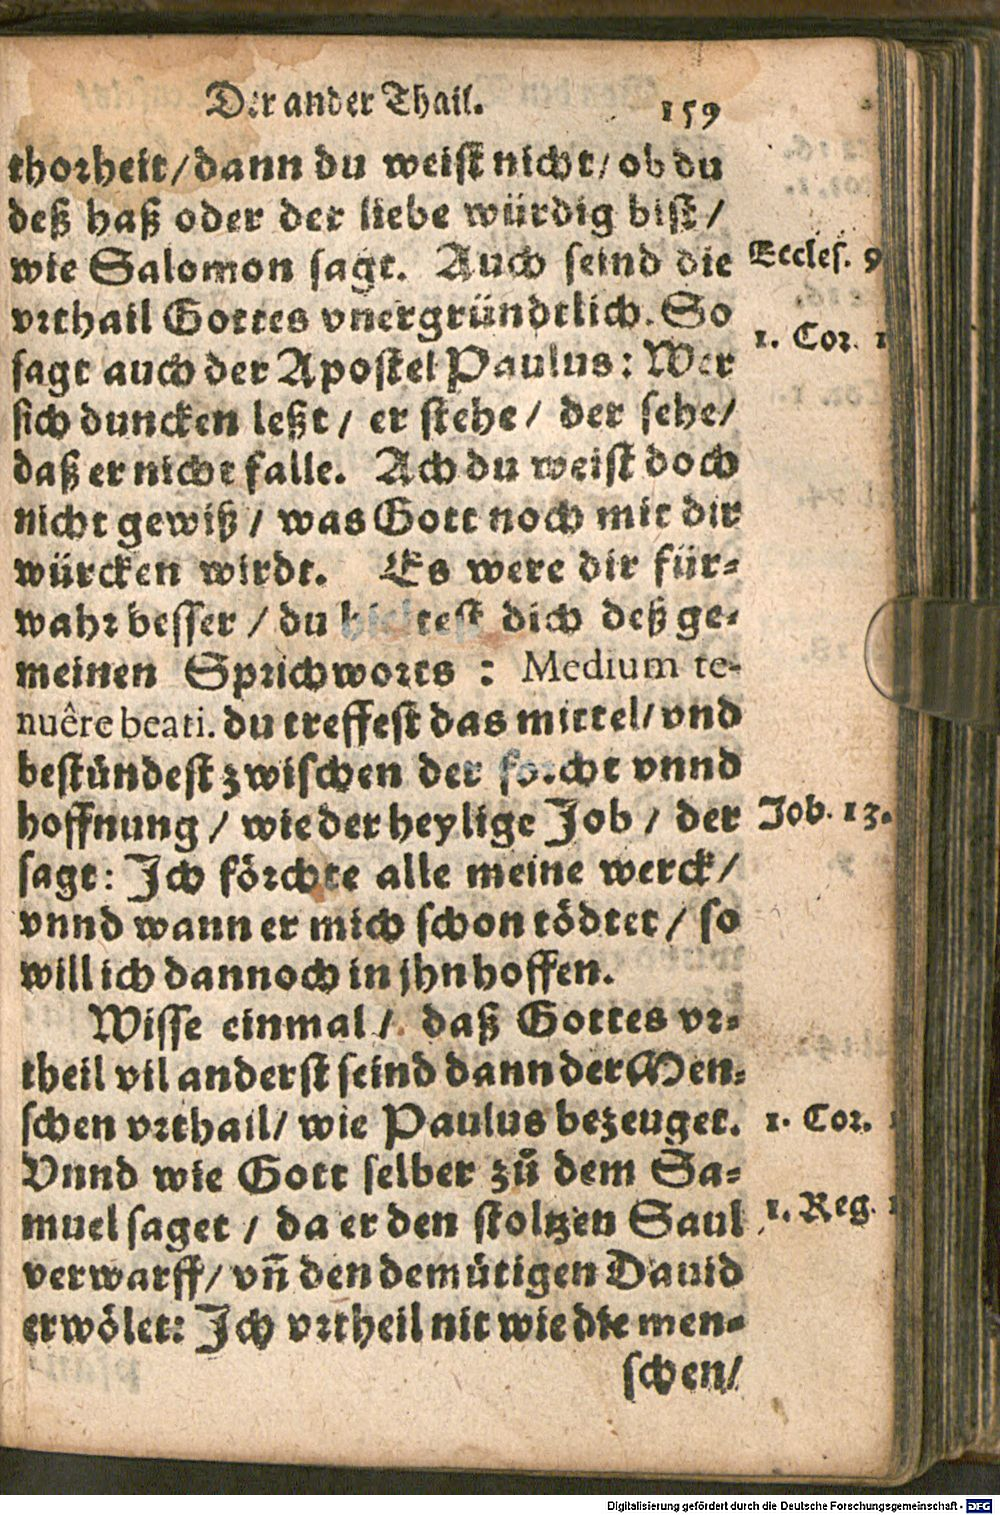 Der ander Thail. 159
thorheit / dann du weist nicht / ob du
deß haß oder der liebe würdig bist /
wie Salomon sagt. Auch seind die
Eccles. 9
vrthail Gottes vnergründtlich. So
sagt auch der Apostel Paulus: Wer
1. Cor. 1
sich duncken leßt / er stehe / der sehe /
daß er nicht falle. Ach du weist doch
nicht gewiß / was Gott noch mit dir
würcken wirdt. Es were dir für-
wahr besser / du hieltest dich deß ge-
meinen Sprichworts : Medium te-
nuêre beati. du treffest das mittel / vnd
bestündest zwischen der forcht vnnd
hoffnung / wie der heylige Job / der
Job. 13.
sagt: Ich förchte alle meine werck /
vnnd wann er mich schon tödtet / so
will ich dannoch in jhn hoffen.
Wisse einmal / daß Gottes vr-
theil vil anderst seind dann der Men-
schen vrthail / wie Paulus bezeuget.
1. Cor.
Vnnd wie Gott selber zů dem Sa-
muel saget / da er den stoltzen Saul
1. Reg.
verwarff / vñ den demütigen Dauid
erwölet: Ich vrtheil nit wie die men-
schen /
Digitalisierung gefördert durch die Deutsche Forschungsgemeinschaft - DFG